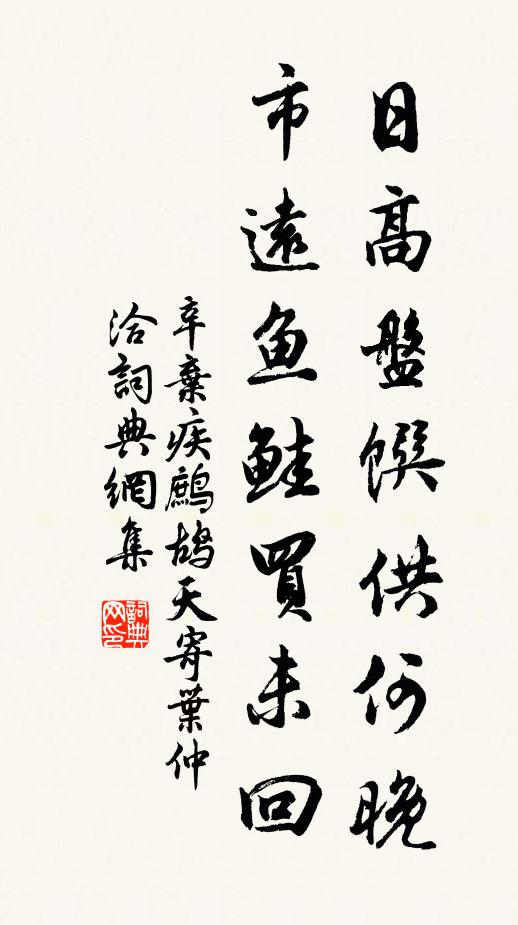 日高盤饌供何晚
市遠魚鮭買未回
辛棄疾鷓鴣天寄葉仲
洽詞典網集
詞典
网印